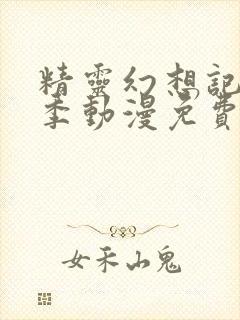 精靈幻想記
季動漫免費
女禾山鬼